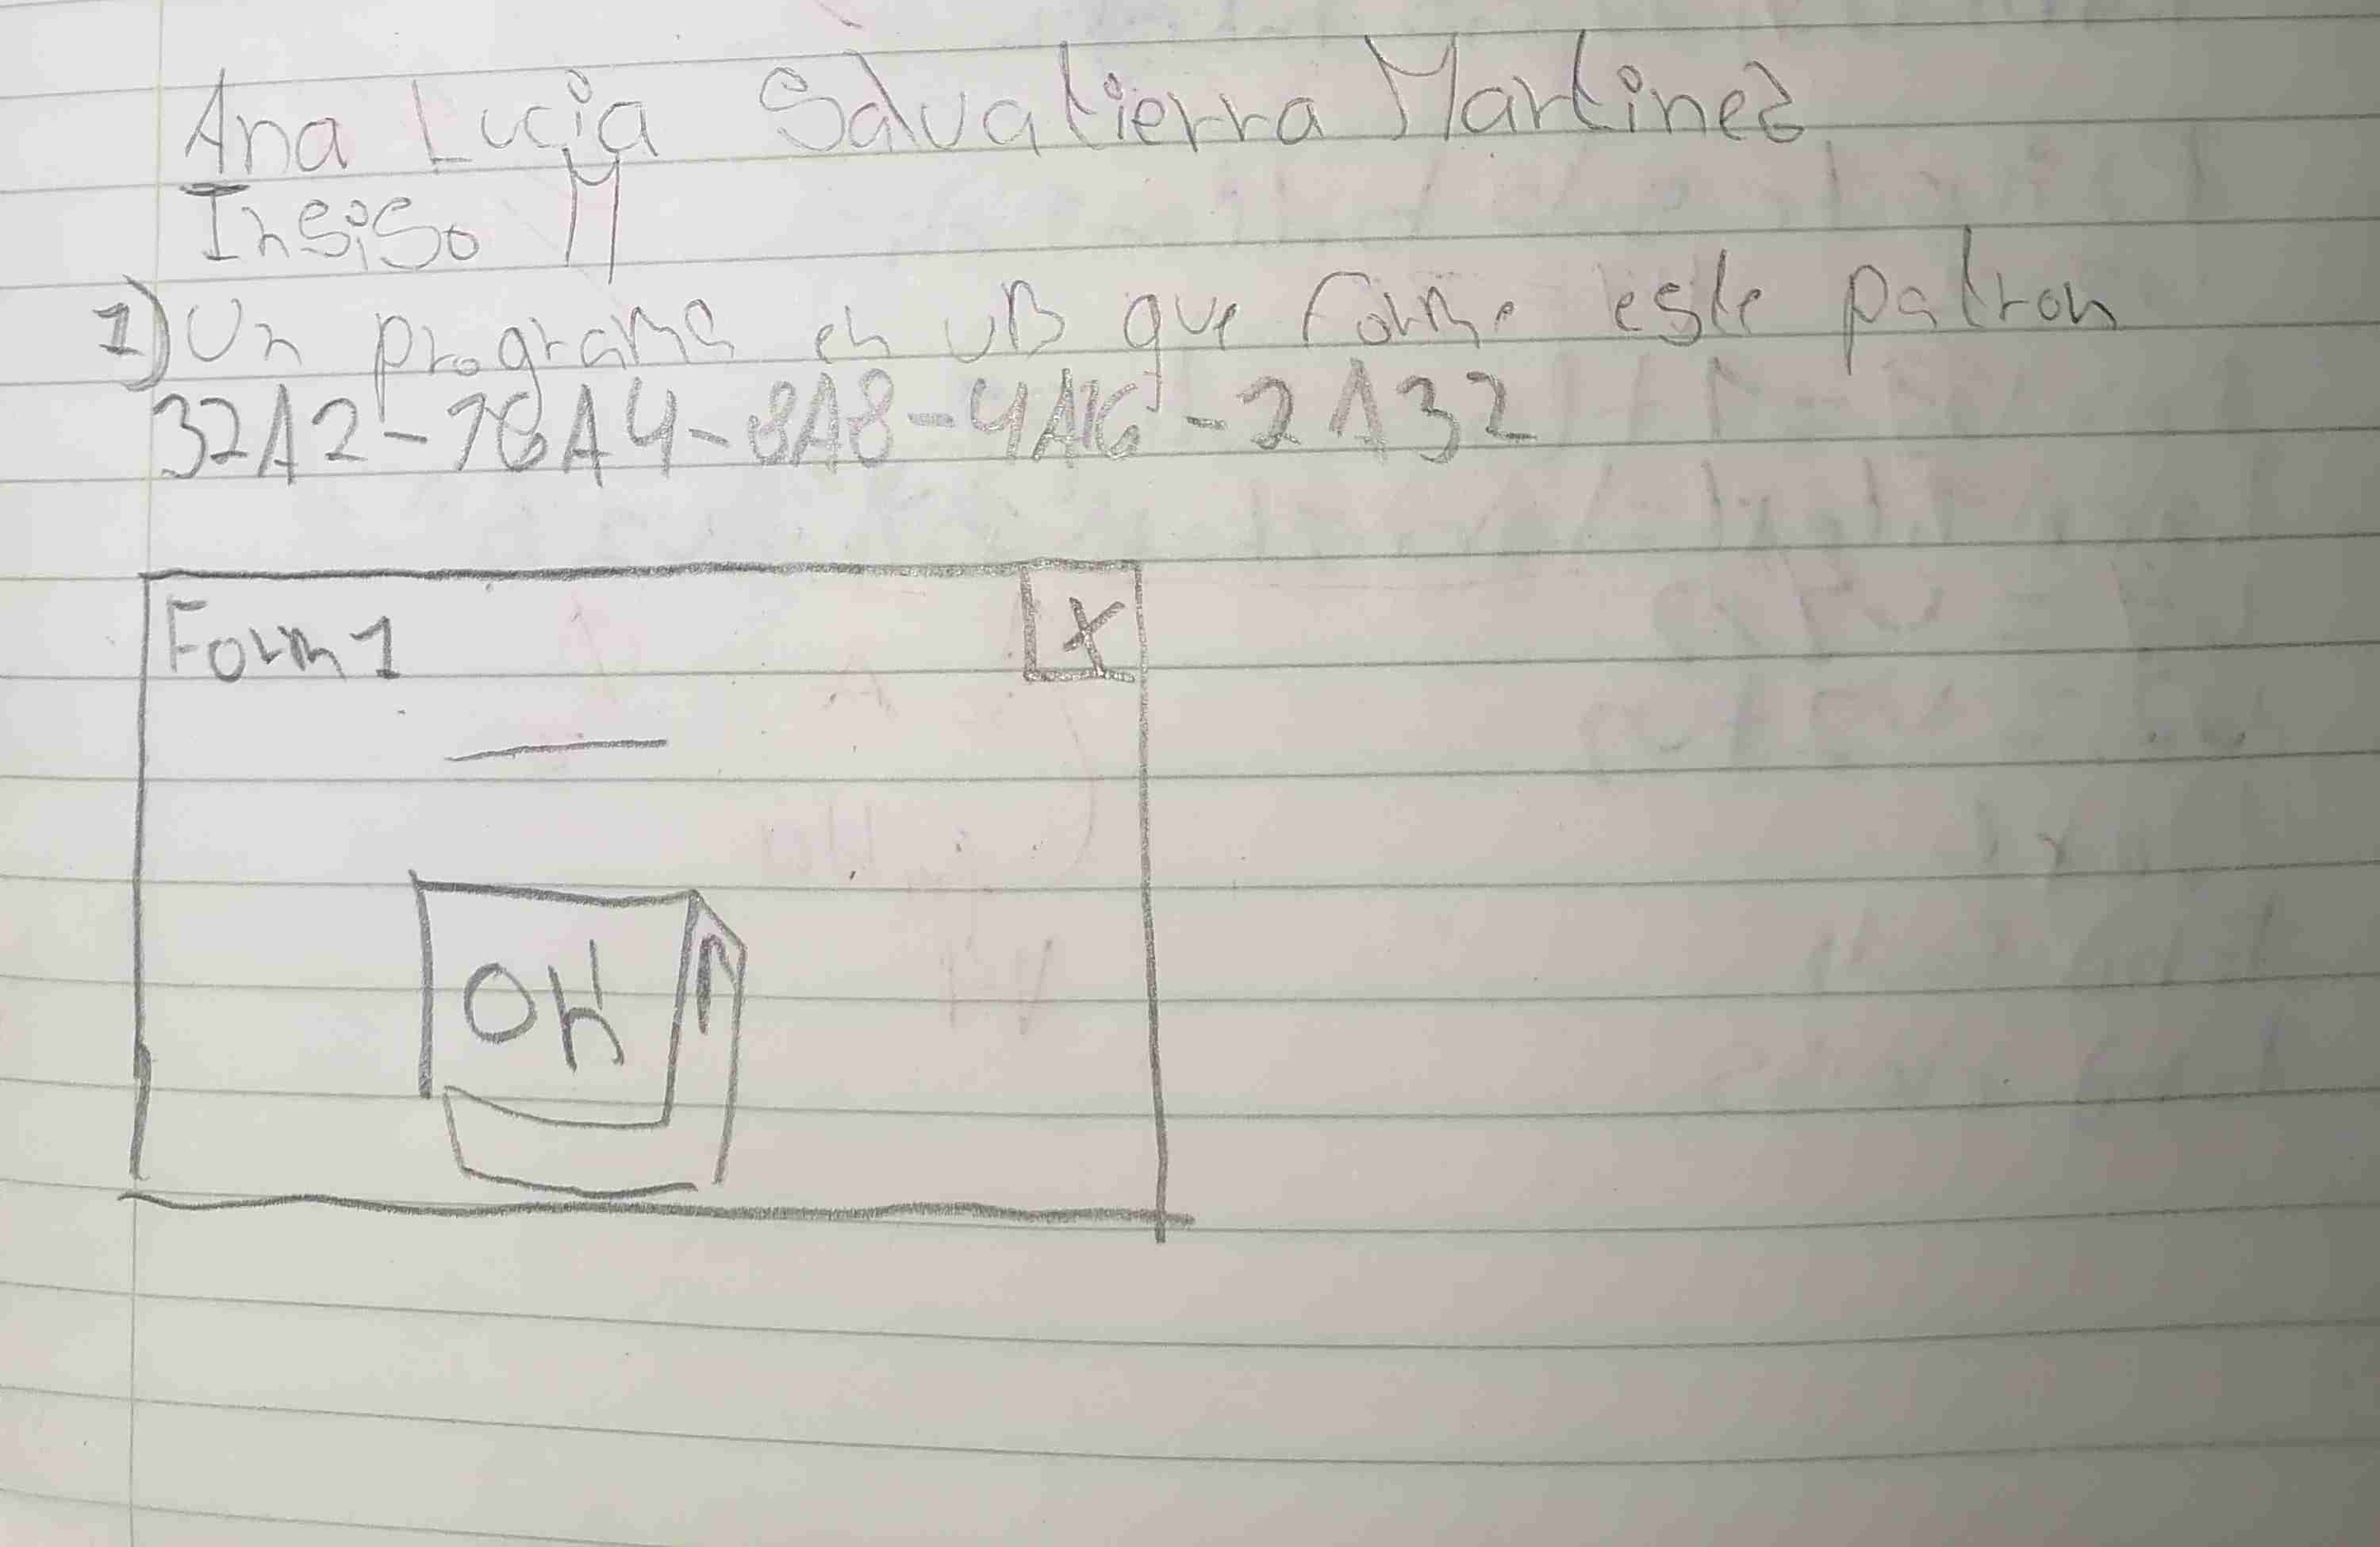 Ana Lucia Salvatierra Martinez
Insiso M
1) Un programa en VB que forme este patron
32A2-16A4-8A8-4A16-2A32
Form1 X
OK